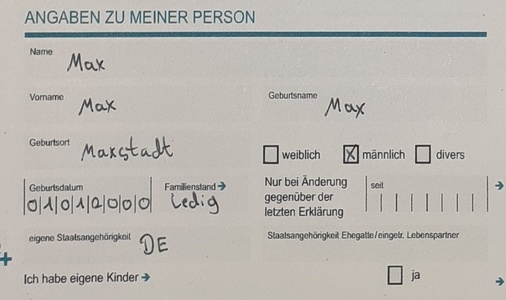 ANGABEN ZU MEINER PERSON
Name
Max
Vorname Geburtsname
Max Max
Geburtsort
Maxstadt
weiblich männlich divers
Geburtsdatum Familienstand Nur bei Änderung gegenüber der letzten Erklärung seit
01012000 Ledig
eigene Staatsangehörigkeit Staatsangehörigkeit Ehegatte/eingetr. Lebenspartner
DE
Ich habe eigene Kinder ja